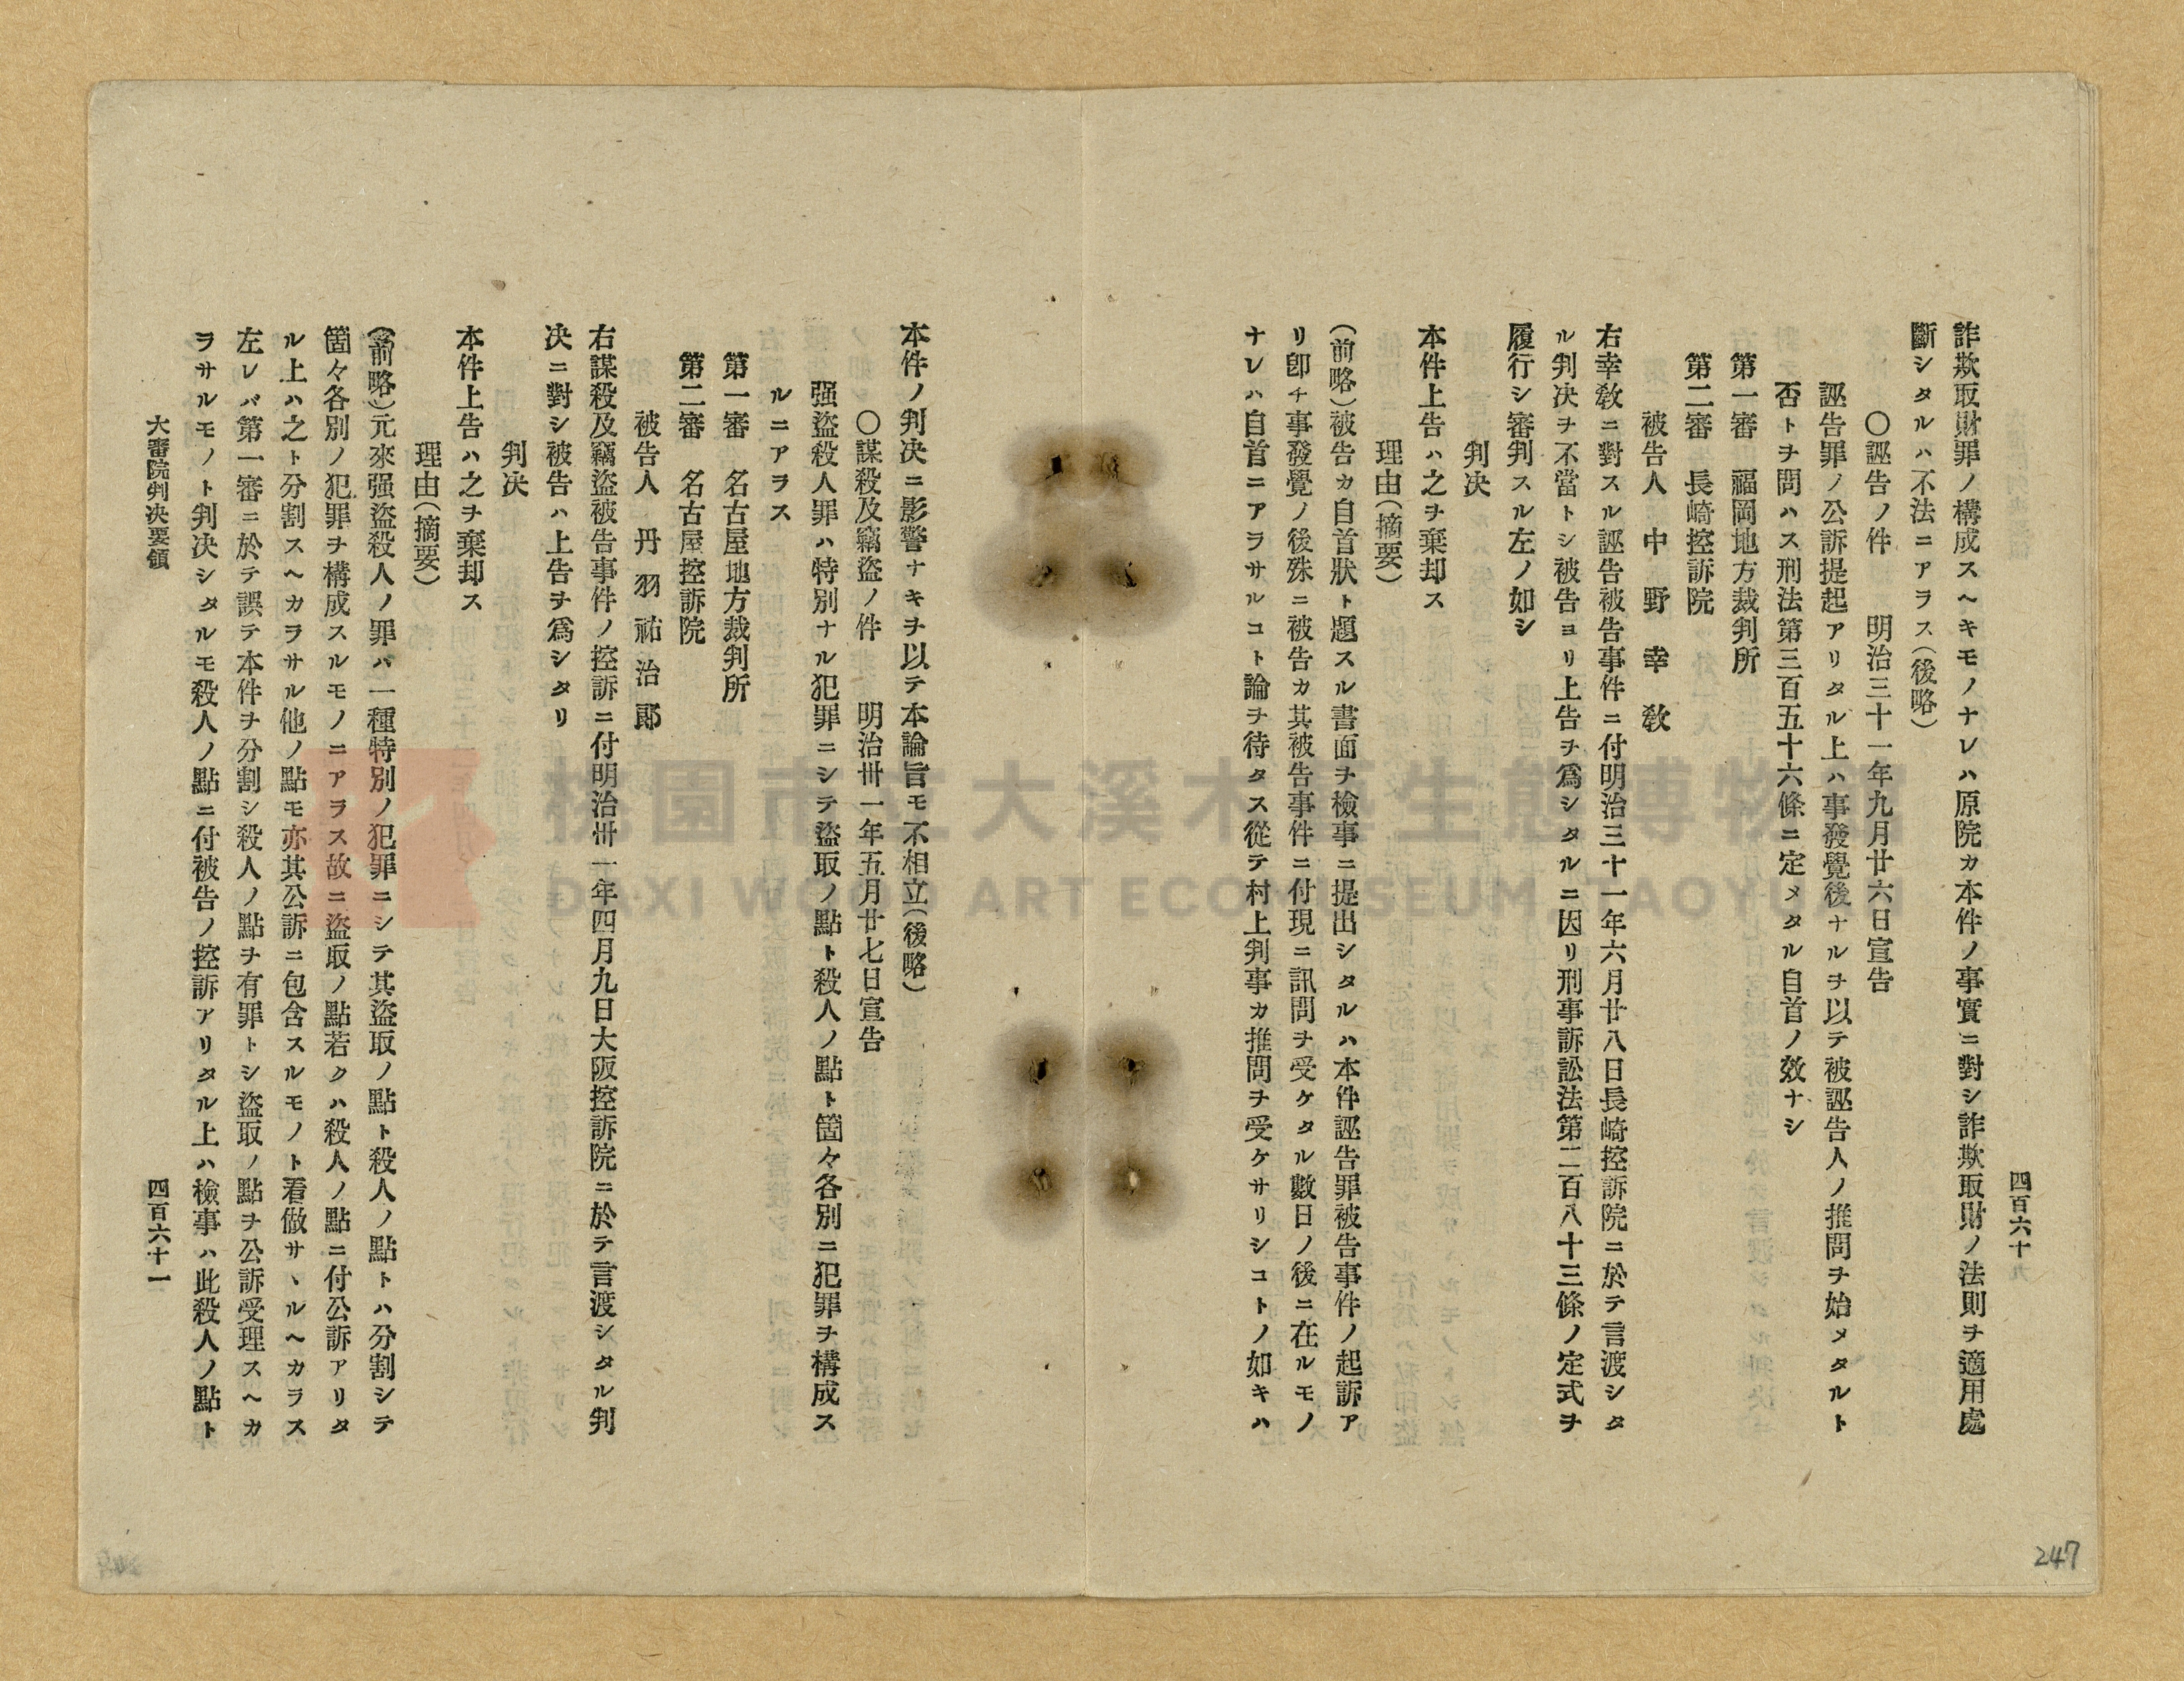 四百六十
詐欺取財罪ノ構成スヘキモノナレハ原院カ本件ノ事實ニ對シ詐欺取財ノ法則ヲ適用處
斷シタルハ不法ニアラス(後略)
〇誣告ノ件 明治三十一年九月廿六日宣告
誣告罪ノ公訴提起アリタル上ハ事發覺後ナルヲ以テ被誣告人ノ推問ヲ始メタルト
否トヲ問ハス刑法第三百五十六條ニ定メタル自首ノ效ナシ
第一審 福岡地方裁判所
第二審 長崎控訴院
被告人 中野幸敎
右幸敎ニ對スル誣告被告事件ニ付明治三十一年六月廿八日長崎控訴院ニ於テ言渡シタ
ル判決ヲ不當トシ被告ヨリ上告ヲ爲シタルニ因リ刑事訴訟法第二百八十三條ノ定式ヲ
履行シ審判スル左ノ如シ
判決
本件上告ハ之ヲ棄却ス
理由(摘要)
(前略)被告カ自首狀ト題スル書面ヲ檢事ニ提出シタルハ本件誣告罪被告事件ノ起訴ア
リ卽チ事發覺ノ後殊ニ被告カ其被告事件ニ付現ニ訊問ヲ受ケタル數日ノ後ニ在ルモノ
ナレハ自首ニアラサルコト論ヲ待タス從テ村上判事カ推問ヲ受ケサリシコトノ如キハ
本件ノ判決ニ影響ナキヲ以テ本論旨モ不相立(後略)
〇謀殺及竊盜ノ件 明治卅一年五月廿七日宣告
强盜殺人罪ハ特別ナル犯罪ニシテ盜取ノ點ト殺人ノ點ト箇々各別ニ犯罪ヲ構成ス
ルニアラス
第一審 名古屋地方裁判所
第二審 名古屋控訴院
被告人 丹羽祐治郞
右謀殺及竊盜被告事件ノ控訴ニ付明治卅一年四月九日大阪控訴院ニ於テ言渡シタル判
決ニ對シ被告ハ上告ヲ爲シタリ
判決
本件上告ハ之ヲ棄却ス
理由(摘要)
(前略)元來强盜殺人ノ罪ハ一種特別ノ犯罪ニシテ其盜取ノ點ト殺人ノ點トハ分割シテ
箇々各別ノ犯罪ヲ構成スルモノニアラス故ニ盜取ノ點若クハ殺人ノ點ニ付公訴アリタ
ル上ハ之ト分割スヘカラサル他ノ點モ亦其公訴ニ包含スルモノト看做サヽルヘカラス
左レハ第一審ニ於テ誤テ本件ヲ分割シ殺人ノ點ヲ有罪トシ盜取ノ點ヲ公訴受理スヘカ
ラサルモノト判決シタルモ殺人ノ點ニ付被告ノ控訴アリタル上ハ檢事ハ此殺人ノ點ト
大審院判決要領
四百六十一
247
桃園市立大溪木藝生態博物館
DAXI WOOD ART ECOMUSEUM, TAOYUAN